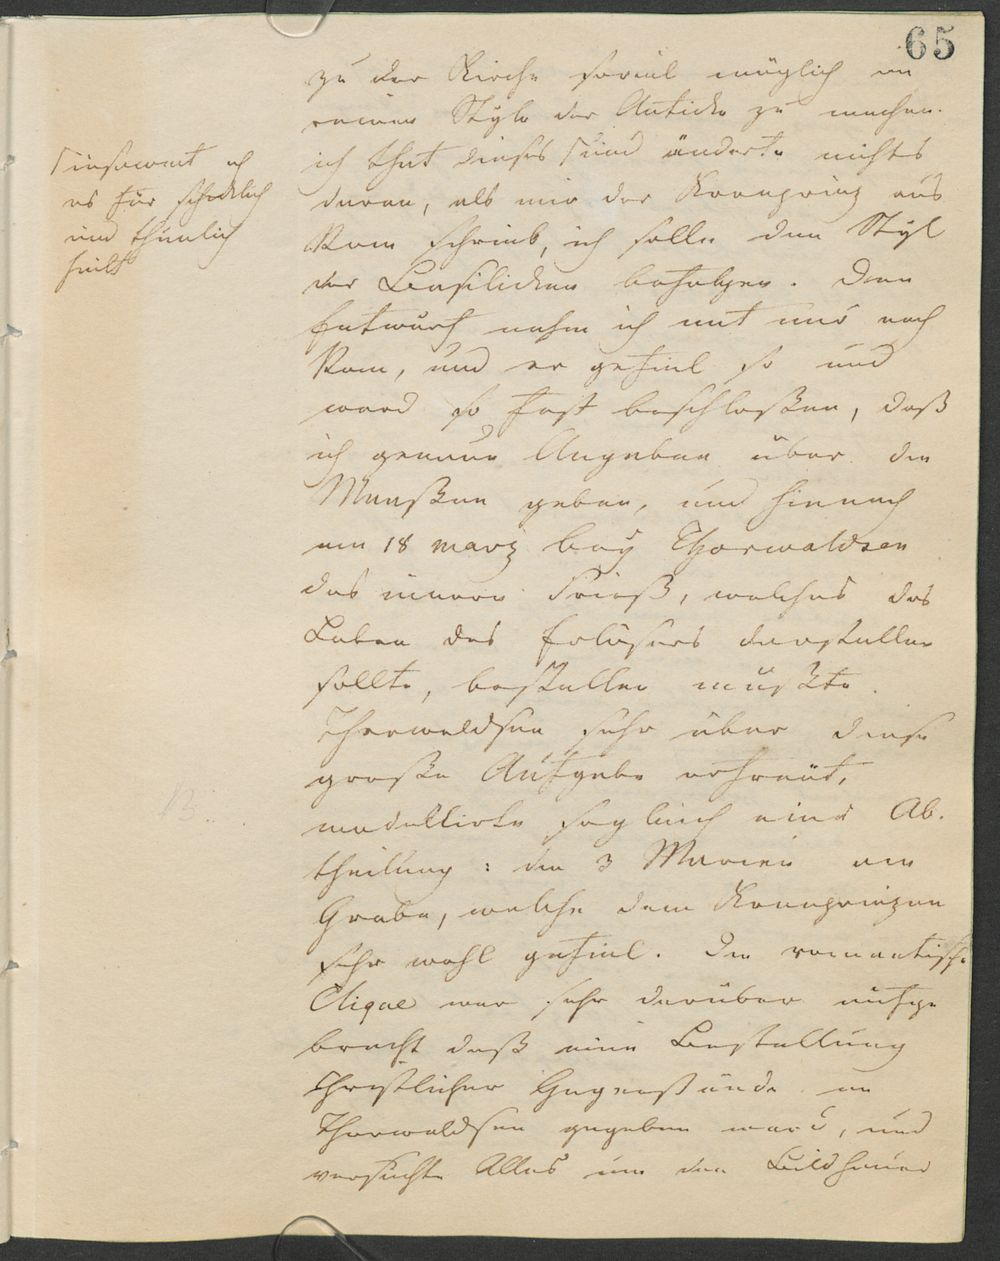 65
zu der Kirche soviel möglich im
reinen Style der Anticke zu machen.
ich that dieses ſ und änderte nichts
daran, als mir der Kronprinz aus
Rom schrieb, ich solle den Styl
der Basilicken befolgen. Den
Entwurf nahm ich mit mir nach
Rom, und er gefiel so und
ward so fest beschloßen, daß
ich genaue Angaben über die
Maaßen geben, und hienach
am 18 März bey Thorwaldsen
das innere Frieß, welches das
Leben des Erlösers darstellen
sollte, bestellen mußte.
Thorwaldsen sehr über diese
große Aufgabe erfreut,
modellirte sogleich eine Ab.
theilung: die 3 Marien am
Grabe, welche dem Kronprinzen
sehr wohl gefiel. Die romantische
Clique war sehr darüber aufge
bracht daß eine Bestellung
Christlicher Gegenstände an
Thorwaldsen gegeben ward, und
versuchte Alles um den Bildhauer
ſ insoweit ich
es für schicklich
und thunlich
hielt